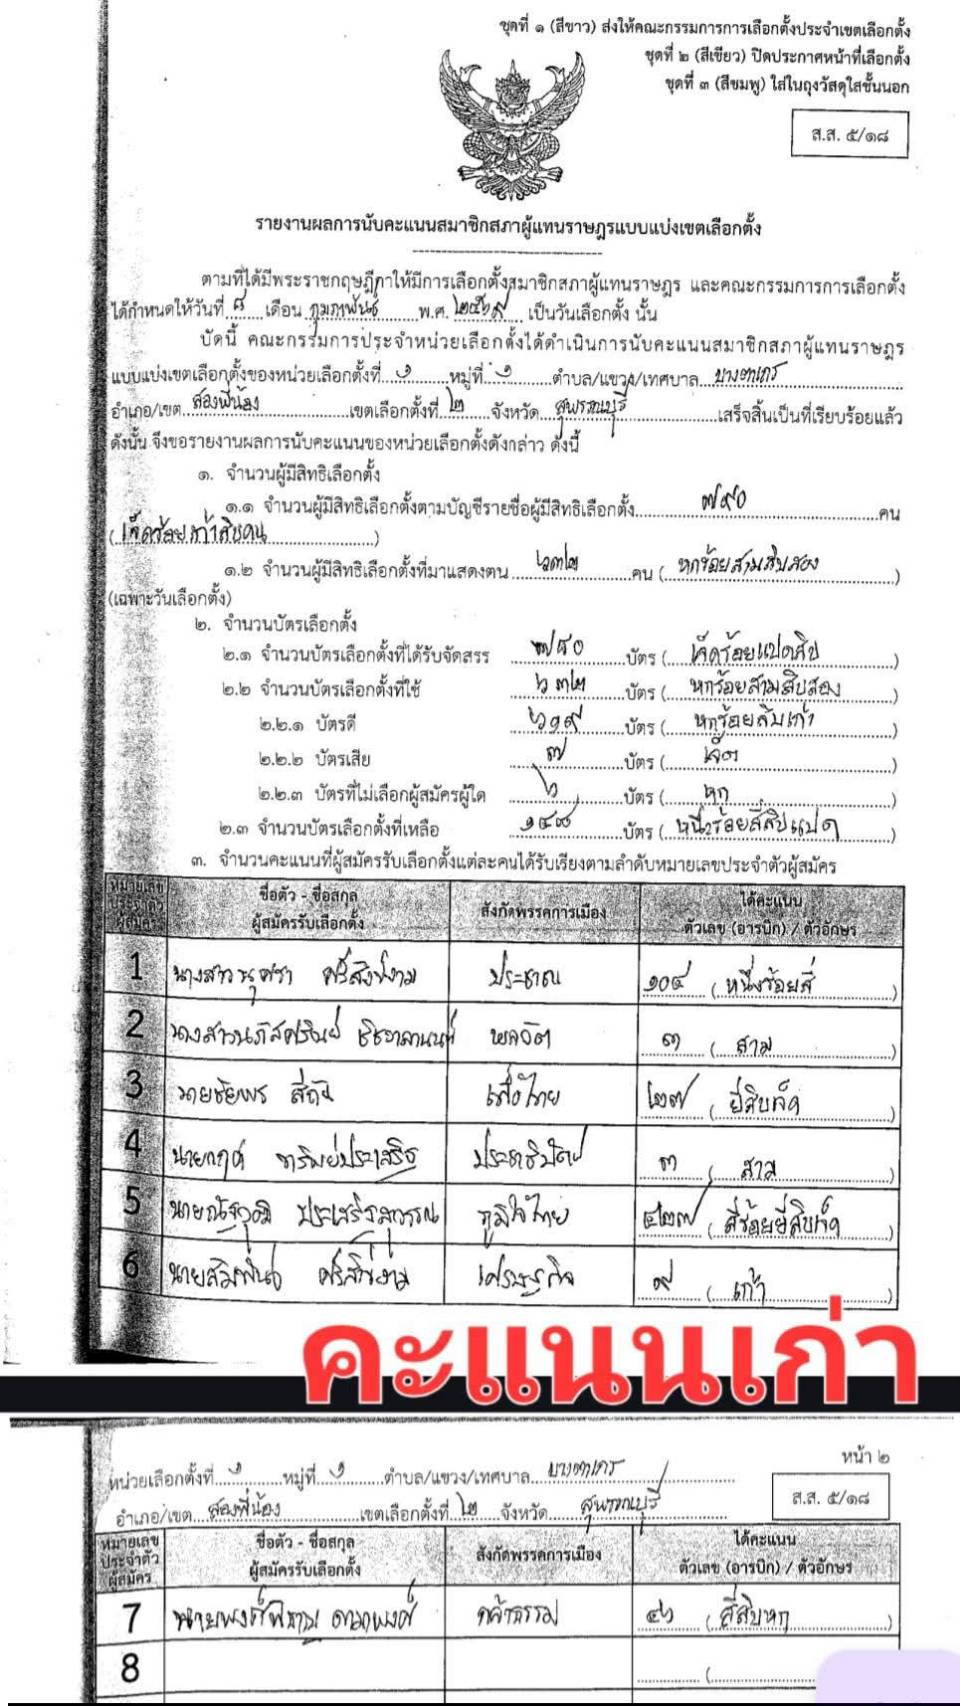 ชุดที่ ๑ (สีขาว) ส่งให้คณะกรรมการการเลือกตั้งประจำเขตเลือกตั้ง
ชุดที่ ๒ (สีเขียว) ปิดประกาศหน้าที่เลือกตั้ง
ชุดที่ ๓ (สีชมพู) ใส่ในถุงวัสดุใสชั้นนอก
ส.ส. ๕/๑๘
รายงานผลการนับคะแนนสมาชิกสภาผู้แทนราษฎรแบบแบ่งเขตเลือกตั้ง
ตามที่ได้มีพระราชกฤษฎีกาให้มีการเลือกตั้งสมาชิกสภาผู้แทนราษฎร และคณะกรรมการการเลือกตั้ง
ได้กำหนดให้วันที่ ๘ เดือน กุมภาพันธ์ พ.ศ. ๒๕๖๙ เป็นวันเลือกตั้ง นั้น
บัดนี้ คณะกรรมการประจำหน่วยเลือกตั้งได้ดำเนินการนับคะแนนสมาชิกสภาผู้แทนราษฎร
แบบแบ่งเขตเลือกตั้งของหน่วยเลือกตั้งที่ ๑ หมู่ที่ ๑ ตำบล/แขวง/เทศบาล บางตาเถร
อำเภอ/เขต สองพี่น้อง เขตเลือกตั้งที่ ๒ จังหวัด สุพรรณบุรี เสร็จสิ้นเป็นที่เรียบร้อยแล้ว
ดังนั้น จึงขอรายงานผลการนับคะแนนของหน่วยเลือกตั้งดังกล่าว ดังนี้
๑. จำนวนผู้มีสิทธิเลือกตั้ง
๑.๑ จำนวนผู้มีสิทธิเลือกตั้งตามบัญชีรายชื่อผู้มีสิทธิเลือกตั้ง ๗๙๐ คน
(เจ็ดร้อยเก้าสิบคน)
๑.๒ จำนวนผู้มีสิทธิเลือกตั้งที่มาแสดงตน ๖๓๒ คน (หกร้อยสามสิบสอง)
(เฉพาะวันเลือกตั้ง)
๒. จำนวนบัตรเลือกตั้ง
๒.๑ จำนวนบัตรเลือกตั้งที่ได้รับจัดสรร ๗๘๐ บัตร (เจ็ดร้อยแปดสิบ)
๒.๒ จำนวนบัตรเลือกตั้งที่ใช้ ๖๓๒ บัตร (หกร้อยสามสิบสอง)
๒.๒.๑ บัตรดี ๖๑๙ บัตร (หกร้อยสิบเก้า)
๒.๒.๒ บัตรเสีย ๗ บัตร (เจ็ด)
๒.๒.๓ บัตรที่ไม่เลือกผู้สมัครผู้ใด ๖ บัตร (หก)
๒.๓ จำนวนบัตรเลือกตั้งที่เหลือ ๑๔๘ บัตร (หนึ่งร้อยสี่สิบแปด)
๓. จำนวนคะแนนที่ผู้สมัครรับเลือกตั้งแต่ละคนได้รับเรียงตามลำดับหมายเลขประจำตัวผู้สมัคร
หมายเลข ประจำตัว ผู้สมัคร ชื่อตัว - ชื่อสกุล ผู้สมัครรับเลือกตั้ง สังกัดพรรคการเมือง ได้คะแนน ตัวเลข (อารบิก) / ตัวอักษร
1 นางสาว ศรีสังข์งาม ประชาชน ๑๐๔ (หนึ่งร้อยสี่)
2 นางสาว พลวัต ๓ (สาม)
3 นายชัยพร สีถัน เพื่อไทย ๒๗ (ยี่สิบเจ็ด)
4 นายกฤต ทรัพย์ประเสริฐ ประชาธิปัตย์ ๓ (สาม)
5 นายณัฐวุฒิ ประเสริฐสุวรรณ ภูมิใจไทย ๔๒๗ (สี่ร้อยยี่สิบเจ็ด)
6 นายสัมพันธ์ ศรีสังข์งาม เศรษฐกิจ ๙ (เก้า)
คะแนนเก่า
หน้า ๒
หน่วยเลือกตั้งที่ ๑ หมู่ที่ ๑ ตำบล/แขวง/เทศบาล บางตาเถร
ส.ส. ๕/๑๘
อำเภอ/เขต สองพี่น้อง เขตเลือกตั้งที่ ๒ จังหวัด สุพรรณบุรี
หมายเลข ประจำตัว ผู้สมัคร ชื่อตัว - ชื่อสกุล ผู้สมัครรับเลือกตั้ง สังกัดพรรคการเมือง ได้คะแนน ตัวเลข (อารบิก) / ตัวอักษร
7 กล้าธรรม ๔๖ (สี่สิบหก)
8